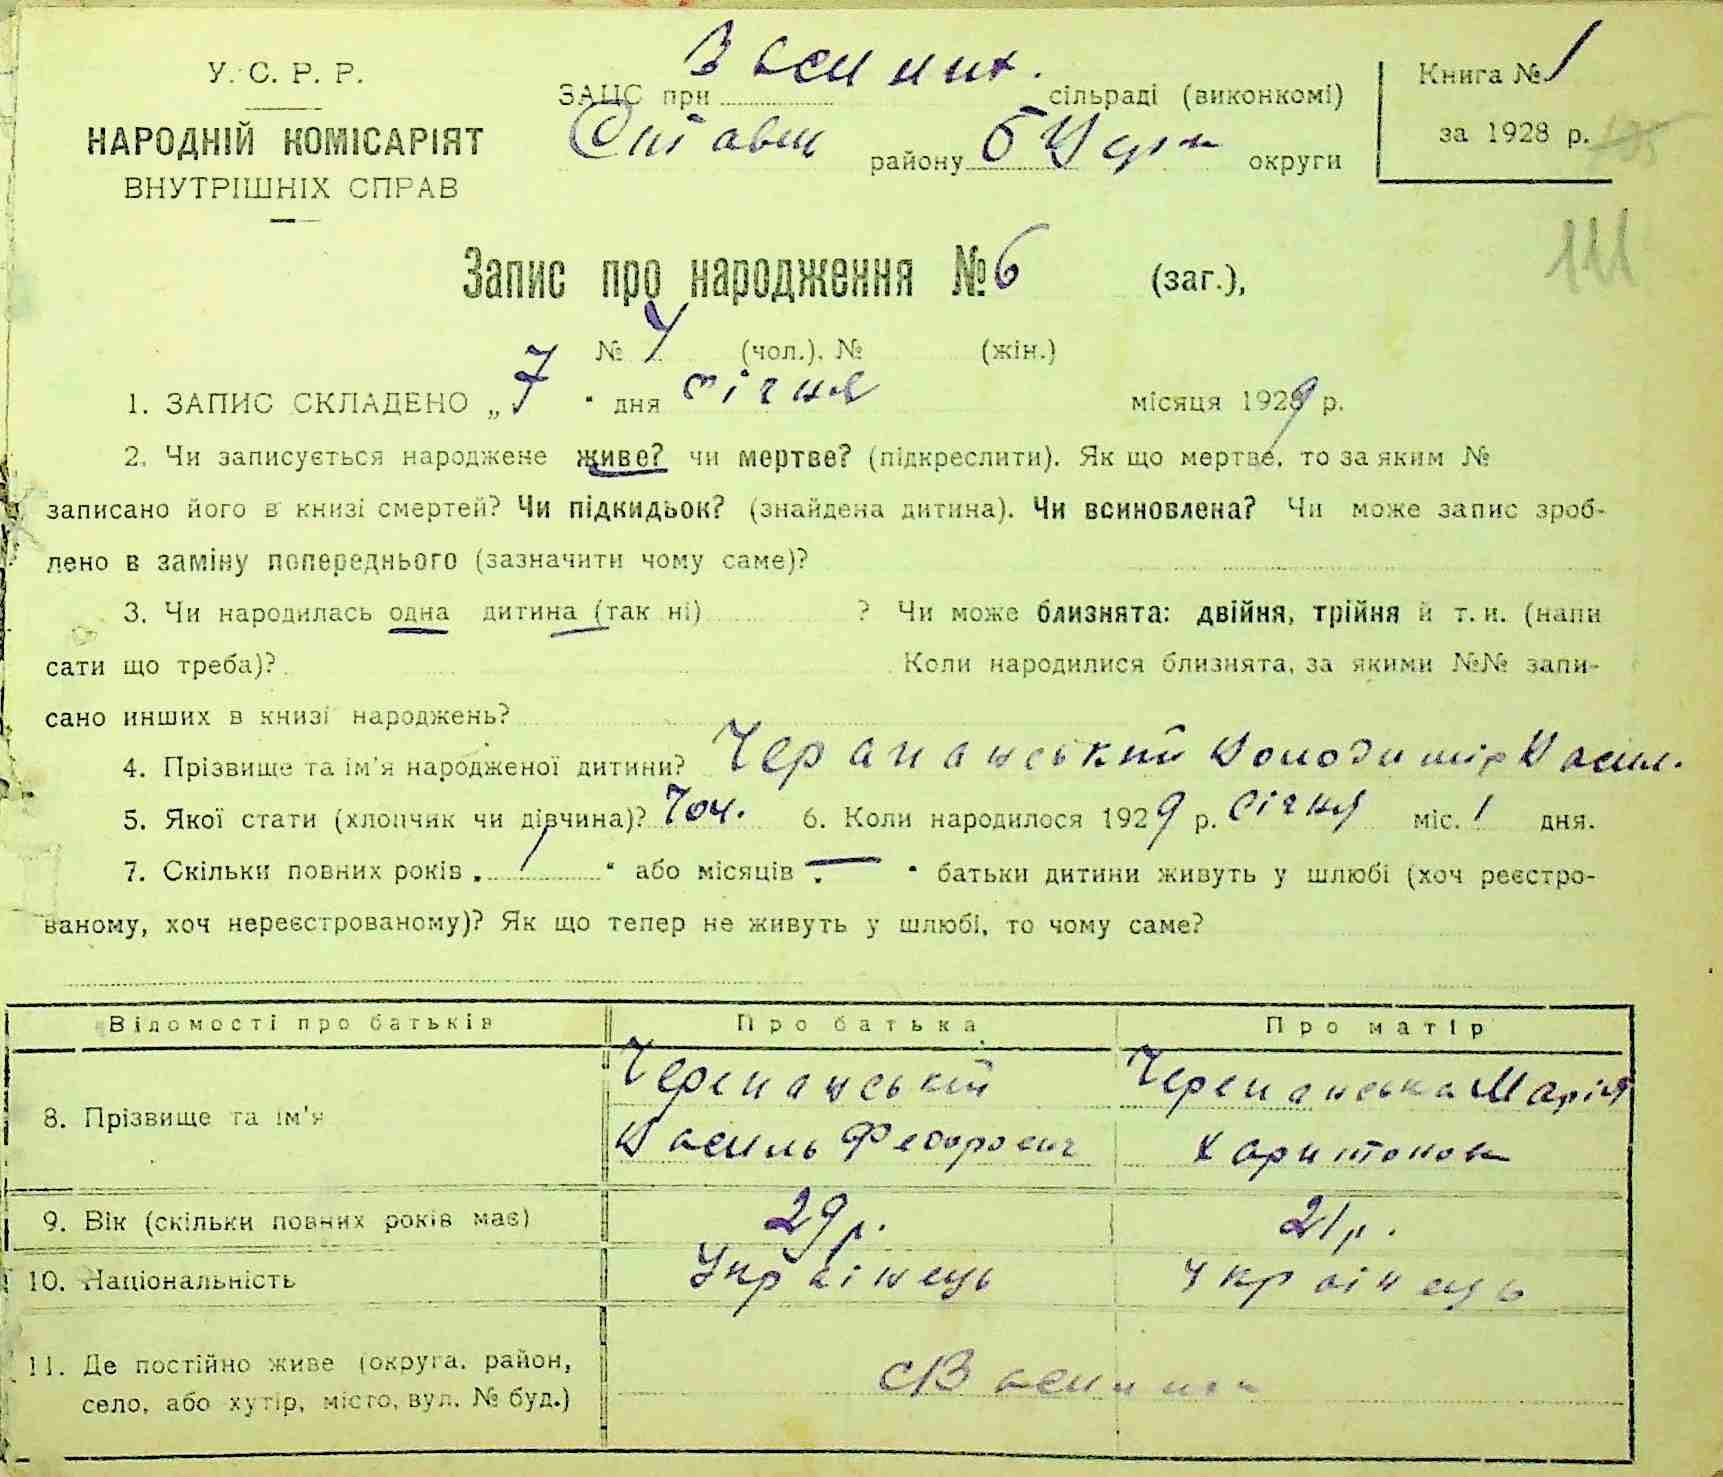 У. С. Р. Р.
НАРОДНІЙ КОМІСАРІЯТ
ВНУТРІШНІХ СПРАВ
ЗАЦС при сільраді (виконкомі)
Ставищ району БЦерк округи
Книга № 1
за 1928 р.
111
Запис про народження № 6 (заг.),
№ 4 (чол.). № (жін.)
1. ЗАПИС СКЛАДЕНО „ 7 " дня січня місяця 1929 р.
2. Чи записується народжене живе? чи мертве? (підкреслити). Як що мертве, то за яким №
записано його в книзі смертей? Чи підкидьок? (знайдена дитина). Чи всиновлена? Чи може запис зроб-
лено в заміну попереднього (зазначити чому саме)?
3. Чи народилась одна дитина (так ні) ? Чи може близнята: двійня, трійня й т. и. (напи
сати що треба)? Коли народилися близнята, за якими №№ запи-
сано инших в книзі народжень?
4. Прізвище та ім'я народженої дитини? Володимір Васил.
5. Якої стати (хлопчик чи дівчина)? Чоч. 6. Коли народилося 1929 р. Січня міс. 1 дня.
7. Скільки повних років „ 1 " або місяців „ — " батьки дитини живуть у шлюбі (хоч реєстро-
ваному, хоч нереєстрованому)? Як що тепер не живуть у шлюбі, то чому саме?
Відомості про батьків Про батька Про матір
8. Прізвище та ім'я Черепанський Черепанська Марія
Василь Федорович Харитонов
9. Вік (скільки повних років має) 29 р. 21 р.
10. Національність Українець Українець
11. Де постійно живе (округа, район,
село, або хутір, місто, вул. № буд.)